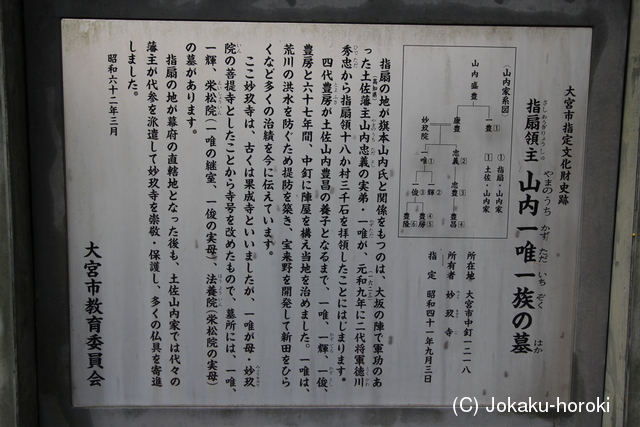 大宮市指定文化財史跡
指扇領主 山内一唯一族の墓
さしおうぎりょうしゅ やまのうち かず ただ いち ぞく はか
所在地 大宮市中釘一二一八
所有者 妙玖寺
指定 昭和四十一年九月三日
(山内家系図)
○指扇・山内家
□土佐・山内家
山内盛豊
一豊①
康豊
妙玖院
忠義②
一唯①
忠豊③
一輝②
一俊③
豊昌④
豊房④⑤
豊隆⑥
指扇の地が旗本山内氏と関係をもつのは、大坂の陣で軍功のあ
った土佐(高知県)藩主山内忠義の実弟・一唯が、元和九年に二代将軍徳川
秀忠から指扇領十八か村三千石を拝領したことにはじまります。
四代豊房が土佐山内豊昌の養子となるまで、一唯、一輝、一俊、
豊房と六十七年間、中釘に陣屋を構え当地を治めました。一唯は、
荒川の洪水を防ぐため堤防を築き、宝来野を開発して新田をひら
くなど多くの治績を今に伝えています。
ここ妙玖寺は、古くは果成寺といいましたが、一唯が母・妙玖
院の菩提寺としたことから寺号を改めたもので、墓所には、一唯、
一輝、栄松院(一唯の継室、一俊の実母)、法養院(栄松院の実母)
の墓があります。
指扇の地が幕府の直轄地となった後も、土佐山内家では代々の
藩主が代参を派遣して妙玖寺を崇敬・保護し、多くの仏具を寄進
しました。
昭和六十二年三月
大宮市教育委員会
(C) Jokaku-horoki